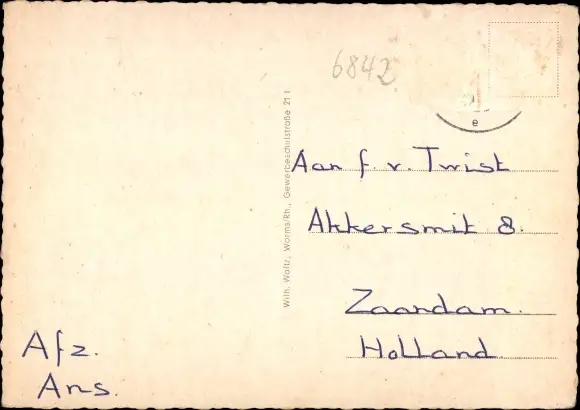 6842
e
Wilh. Waltz, Worms/Rh., Gewerbeschulstraße 21 I
Aan f. v. Twist
Akkersmit 8.
Zaandam.
Holland
Afz.
Ans.